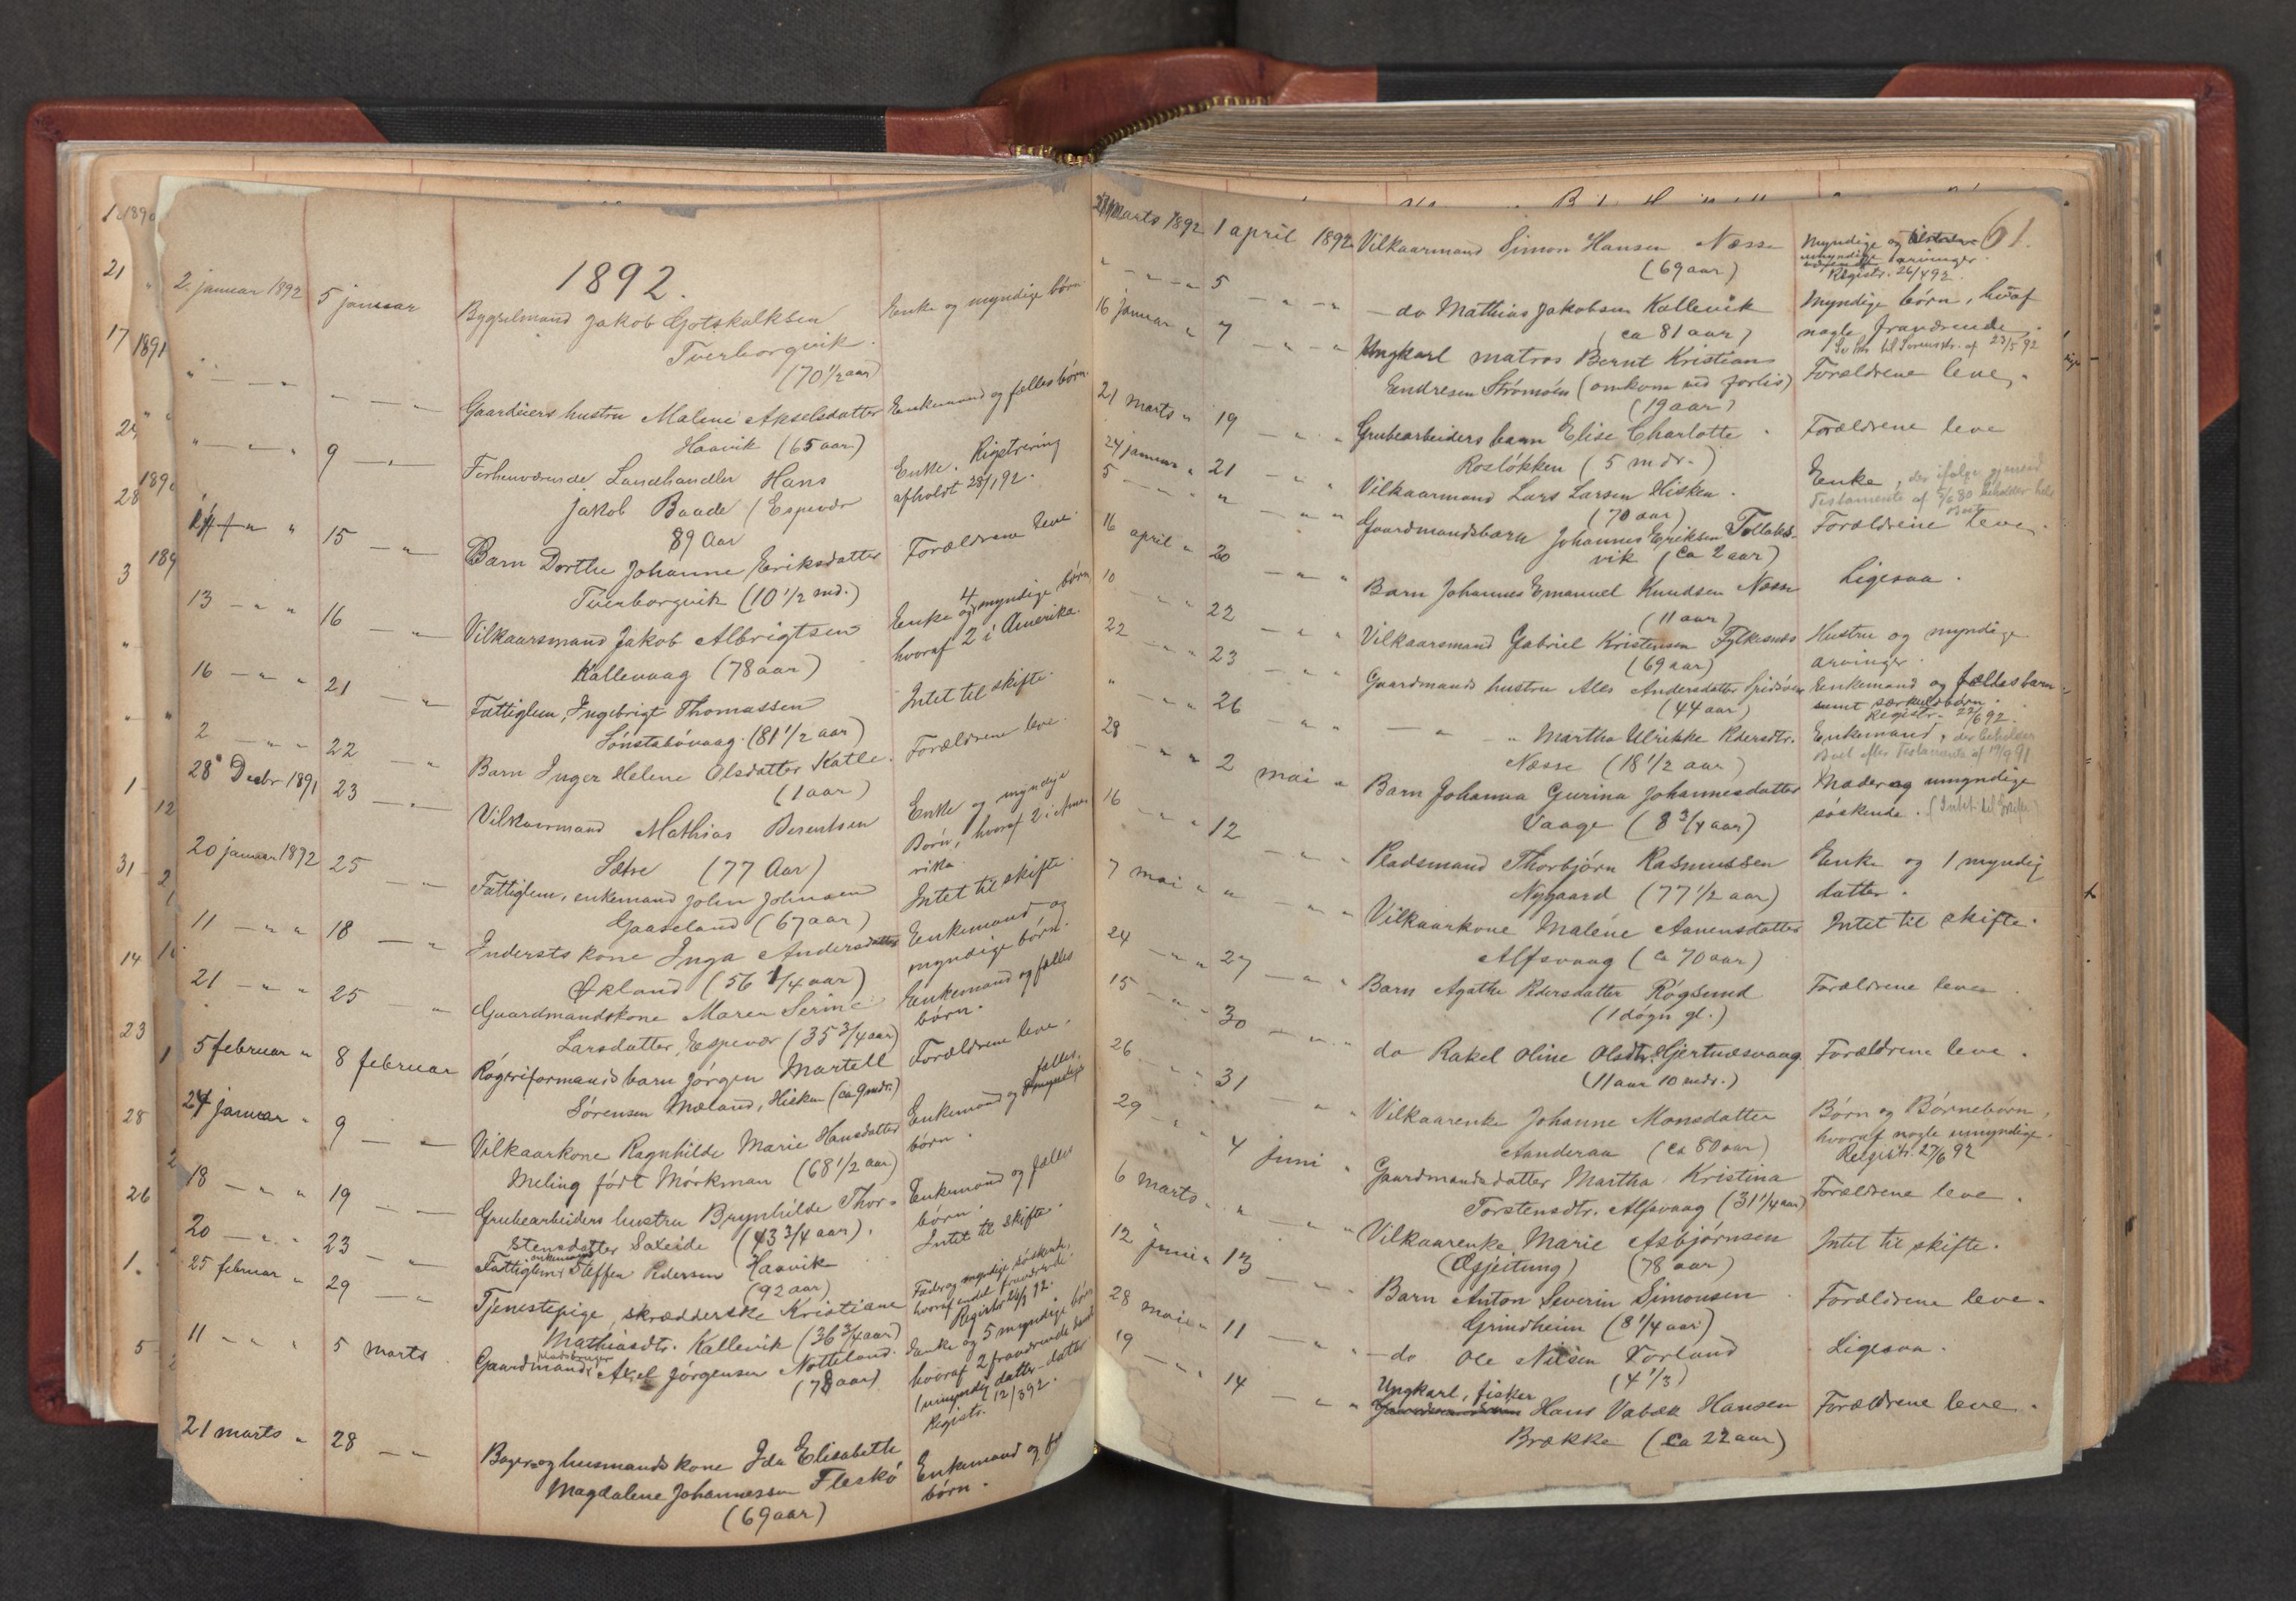 1892.
2 januar 1892 5 januar Bygselmand Jakob Gotskalksen Enke og myndige børn
Tverborgvik.
(70 1/2 aar)
" — " — " — " Gaardeiers hustru Malene Akselsdatter Enkemand og fælles børn.
Haavik (65 aar)
" — " " 9 — " Forhenværende Landhandler Hans Enke. Registrering
Jakob Baade / Espevær afholdt 28/1 92.
89 Aar
" 15 — " Barn Dorthe Johanne Eriksdatter Forældrene leve.
Tverborgvik (10 1/2 md.)
13 — " " 16 — " Vilkaarsmand Jakob Albrigtsen Enke og 4 myndige børn
Kallevaag (78 aar) hvoraf 2 i Amerika.
16 — " " 21 — " Fattiglem, Ingebrigt Thomassen Intet til skifte.
Sønstabøvaag. (81 1/2 aar)
2 — " " 22 — " Barn Inger Helene Olsdatter Katle. Forældrene leve.
(1 aar)
28 Decbr 1891 23 — " Vilkaarmand Mathias Berentsen Enke og myndige
Sætre (77 Aar) Børn, hvoraf 2 i Ame
rika.
20 januar 1892 25 — " Fattiglem, enkemand John Johnsen Intet til skifte.
Gaaseland (67 aar)
11 — " " 18 — " Inderstskone Inga Andersdatter Enkemand og
Økland (56 1/4 aar) myndige børn.
21 — " " 25 — " Gaardmandskone Maren Serine Enkemand og fælles
Larsdatter, Espevær (35 3/4 aar) børn.
5 februar " 8 februar Røgteriformands barn Jørgen Martell Forældrene leve.
Sørensen Mæland, Hisken (ca 9 mdr.)
24 januar " 9 — " Vilkaarkone Ragnhilde Marie Hansdatter Enkemand og fælles
Meling født Mørkman (68 1/2 aar) børn.
18 — " " 19 — " Grubearbeiders hustru Brynhilde Thor= Enkemand og fælles
stensdatter Sakseide (43 3/4 aar). børn.
20 — " " 23 — " Fattiglem, enkemand Steffen Pedersen Haavik Intet til skifte.
(92 aar)
25 februar " 29 — " Tjenestepige, skrædderske Kristiane Fader og myndige søskende,
Mathiasdtr. Kallevik (36 3/4 aar) hvoraf endel fraværende
11 — " " 5 marts Gaardmand, Aksel Jørgensen Notteland. Enke og 5 myndige børn
(78 aar) hvoraf 2 fraværende samt
1 umyndig datter-datter
Registr. 12/3 92.
21 marts " 28 — " Bager og husmandskone Ida Elisabeth Enkemand og
Magdalene Johannessen Fleskø børn.
(69 aar)
61.
marts 1892 1 april 1892 Vilkaarmand Simon Hansen Næsse Myndige og
(69 aar) arvinger.
Registr. 26/4 92.
" — " 5 — " " — do Mathias Jakobsen Kallevik Myndige børn, hvoraf
(ca 81 aar) nogle fraværende.
16 januar " 7 — " " Ungkarl matros Bernt Kristian Forældrene leve.
Endresen Strømøen (omkom ved forlis)
(19 aar)
21 marts " 19 — " " Grubearbeiders barn Elise Charlotte Forældrene leve
Rosløkken (5 mdr.)
24 januar " 21 — " " Vilkaarmand Lars Larsen Hisken. Enke, der ifølge gjensid.
(70 aar) Testamente af beholder hele
Boet
5 — " " — " " Gaardmandsbarn Johannes Eriksen Tollaks- Forældrene leve.
vik (ca 2 aar)
16 april " 20 — " " Barn Johannes Emanuel Knudsen Næsse Ligesaa.
(11 aar)
10 — " " 22 — " " Vilkaarsmand Gabriel Kristensen Fylkesnæs Hustru og myndige
(69 aar) arvinger.
22 — " " 23 — " " Gaardmands hustru Ales Andersdatter Enkemand og fælles barn
(44 aar) samt særkuldsbørn.
Registr. 22/6 92.
" — " " 26 " " — " — " Martha Ulrikke Pdersdtr. Enkemand, der beholder
Næsse (18 1/2 aar) Boet efter Testamente af 19/9 91
28 — " " 2 mai " Barn Johanna Gurina Johannesdatter Moder og umyndige
Vaage (8 3/4 aar) søskende. (Intet til Skifte)
16 — " " 12 — " " Pladsmand Thorbjørn Rasmussen Enke og 1 myndig
Nygaard (77 1/2 aar) datter.
7 mai " " — " " Vilkaarkone Malene Aanensdatter Intet til skifte.
Alfsvaag (ca 70 aar)
24 — " " 27 — " " Barn Agathe Pdersdatter Røgsund Forældrene leve
(1 døgn gl.)
15 — " " 30 — " " do Rakel Oline Olsdtr. Gjertnæsvaag Forældrene leve.
(11 aar 10 mdr.)
26 — " " 31 — " " Vilkaarenke Johanne Monsdatter Børn og Børnebørn,
Aanderaa (ca 80 aar) hvoraf nogle umyndige.
Registr. 27/6 92
29 — " " 4 juni " Gaardmandsdatter Martha Kristina Forældrene leve.
Torstensdtr. Alfsvaag (31 1/4 aar)
6 marts " " — " " Vilkaarenke Marie Asbjørnsen Intet til skifte.
(78 aar)
12 juni " 13 — " " Barn Anton Severin Simonsen Forældrene leve.
Grindheim (8 1/4 aar)
28 mai " 11 — " " — do Ole Nilsen Vorland Ligesaa.
(4 1/3)
19 — " " 14 — " " Ungkarl, fisker Hans Vabæk Hansen Forældrene leve.
Brække (ca 22 aar)